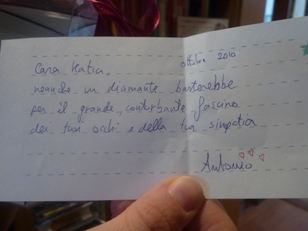 Cara Katia, ottobre 2010
neanche un diamante basterebbe
per il grande, conturbante fascino
dei tuoi occhi e della tua simpatia
Antonio